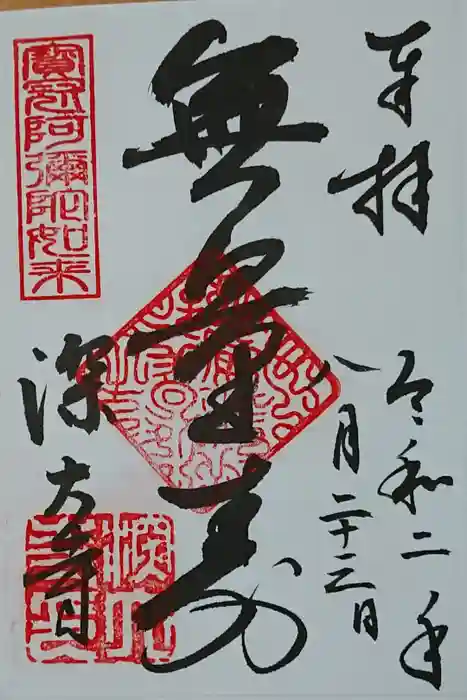 奉拝
令和二年
八月二十三日
無量寿
寶冠阿彌陀如来
深大寺